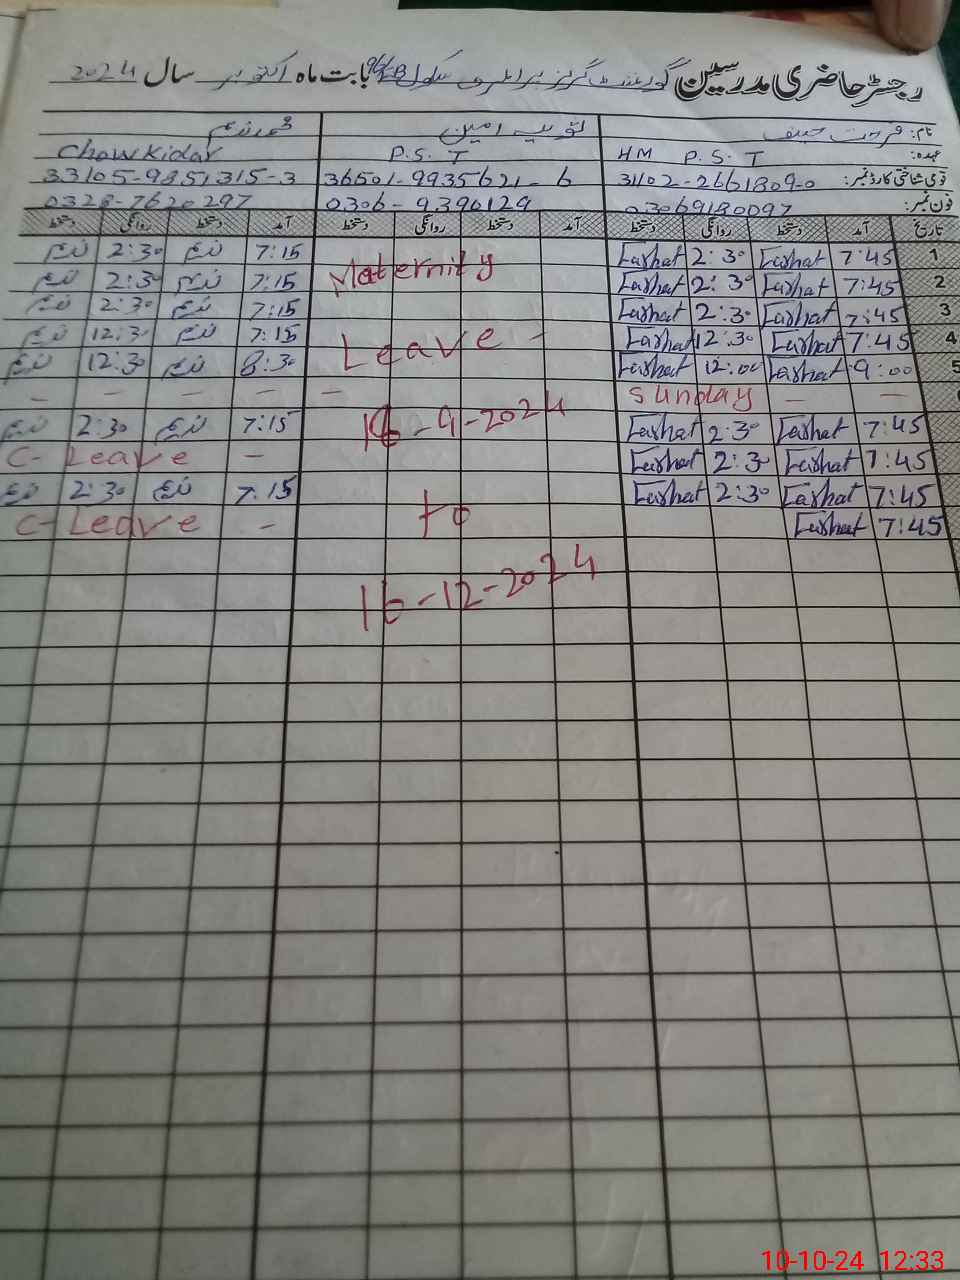 رجسٹر حاضری مدرسین گورنمنٹ گرلز پرائمری سکول 96/EB بابت ماہ اکتوبر سال 2024
نام: فرحت حنیف ثوبیہ امین محمد ندیم
عہدہ: HM P.S.T P.S.T Chowkidar
قومی شناختی کارڈ نمبر: 31102-2661809-0 36501-9935621-6 33105-9851315-3
فون نمبر: 03069180097 0306-9396129 0328-7620297
تاریخ آمد دستخط روانگی دستخط آمد دستخط روانگی دستخط آمد دستخط روانگی دستخط
1 7:45 Farhat 2:30 Farhat Maternity 7:15 ندیم 2:30 ندیم
2 7:45 Farhat 2:30 Farhat 7:15 ندیم 2:30 ندیم
3 7:45 Farhat 2:30 Farhat 7:15 ندیم 2:30 ندیم
4 7:45 Farhat 12:30 Farhat Leave - 7:15 ندیم 12:30 ندیم
5 9:00 Farhat 12:00 Farhat 8:30 ندیم 12:30 ندیم
Sunday - - - - - - -
7:45 Farhat 2:30 Farhat 16-9-2024 7:15 ندیم 2:30 ندیم
7:45 Farhat 2:30 Farhat C-Leave -
7:45 Farhat 2:30 Farhat 7:15 ندیم 2:30 ندیم
7:45 Farhat to C-Leave -
16-12-2024
10-10-24 12:33